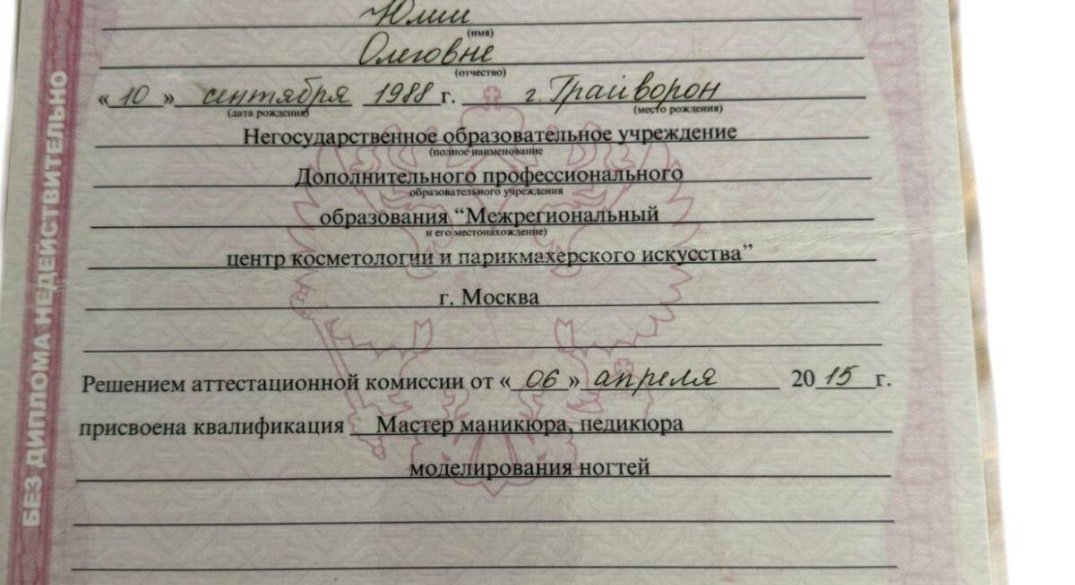 Юлии
(имя)
Олеговне
(отчество)
« 10 » сентября 1988 г. г. Грайворон
(дата рождения) (место рождения)
Негосударственное образовательное учреждение
(полное наименование
Дополнительного профессионального
образовательного учреждения
образования “Межрегиональный
и его местонахождение)
центр косметологии и парикмахерского искусства”
г. Москва
Решением аттестационной комиссии от « 06 » апреля 20 15 г.
присвоена квалификация Мастер маникюра, педикюра
моделирования ногтей
БЕЗ ДИПЛОМА НЕДЕЙСТВИТЕЛЬНО